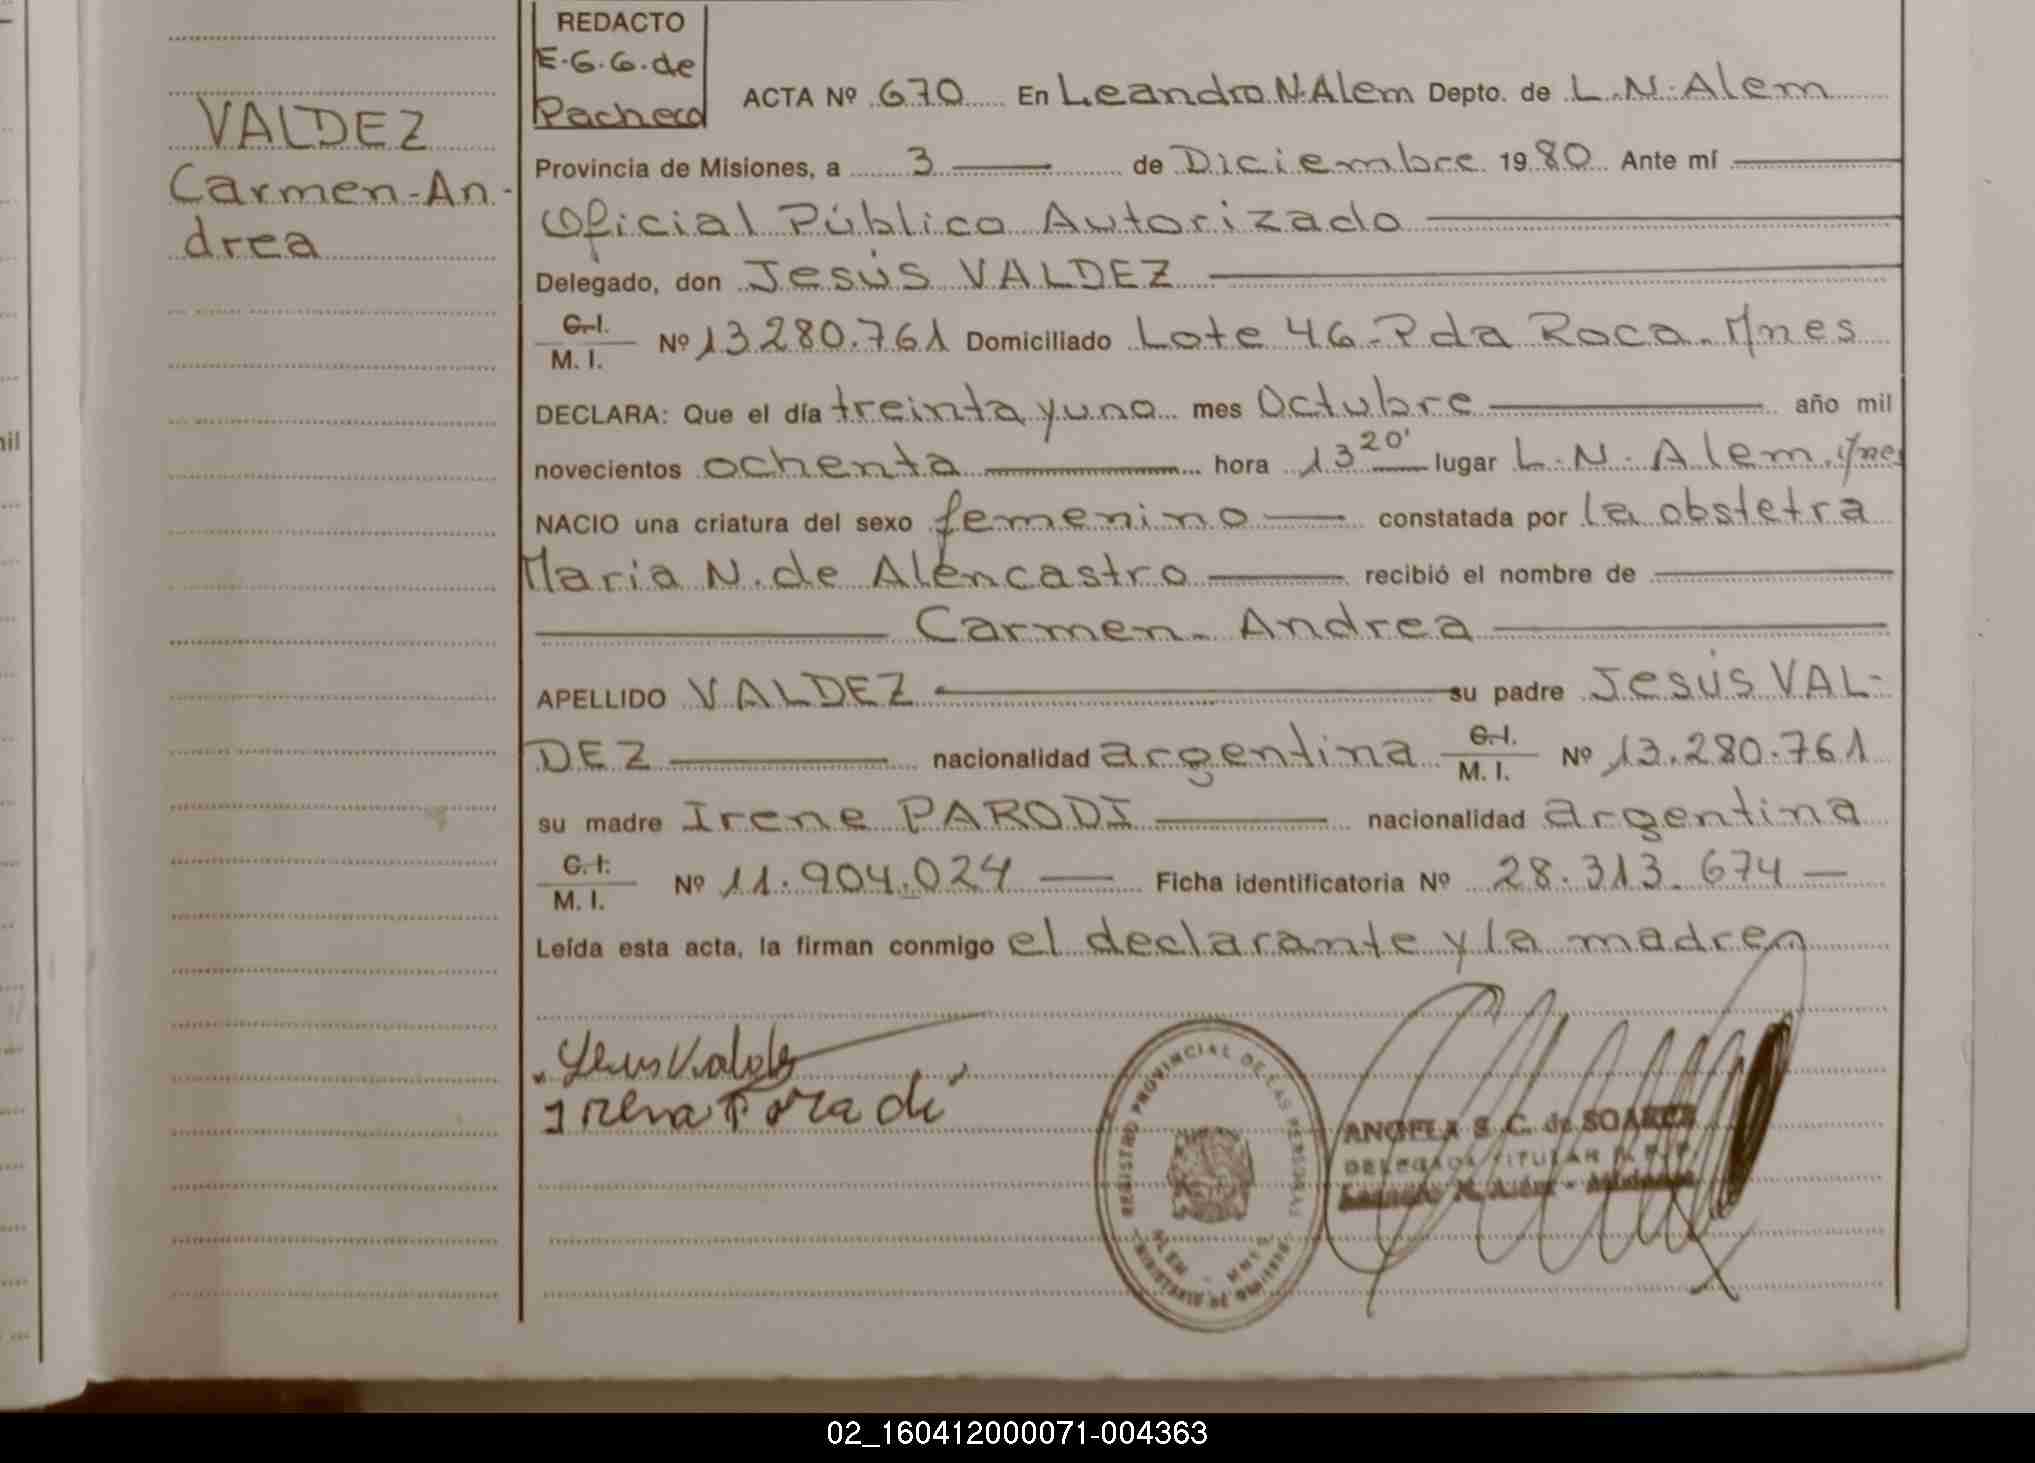 REDACTO
E.G.G. de
Pacheco
VALDEZ
Carmen-An-
drea
ACTA Nº 670 En Leandro N. Alem Depto. de L. N. Alem
Provincia de Misiones, a 3 de Diciembre 1980 Ante mí
Oficial Público Autorizado
Delegado, don Jesús VALDEZ
C. I.
M. I. Nº 13.280.761 Domiciliado Lote 46 - Pda Roca. Mnes
DECLARA: Que el día treinta y uno mes Octubre año mil
novecientos ochenta hora 13 20' lugar L. N. Alem, Mnes
NACIO una criatura del sexo femenino constatada por la obstetra
Maria N. de Alencastro recibió el nombre de
Carmen - Andrea
APELLIDO VALDEZ su padre Jesús VAL-
DEZ nacionalidad argentina C. I. M. I. Nº 13.280.761
su madre Irene PARODI nacionalidad argentina
C. I.
M. I. Nº 11.904.024 Ficha identificatoria Nº 28.313.674
Leída esta acta, la firman conmigo el declarante y la madre
Jesus Valdez
REGISTRO PROVINCIAL DE LAS PERSONAS
ALEM - MNES
MINISTERIO DE GOBIERNO
ANGELA S. C. de SOAREZ
DELEGADA TITULAR R. P. P.
Leandro N. Alem - Misiones
02_160412000071-004363